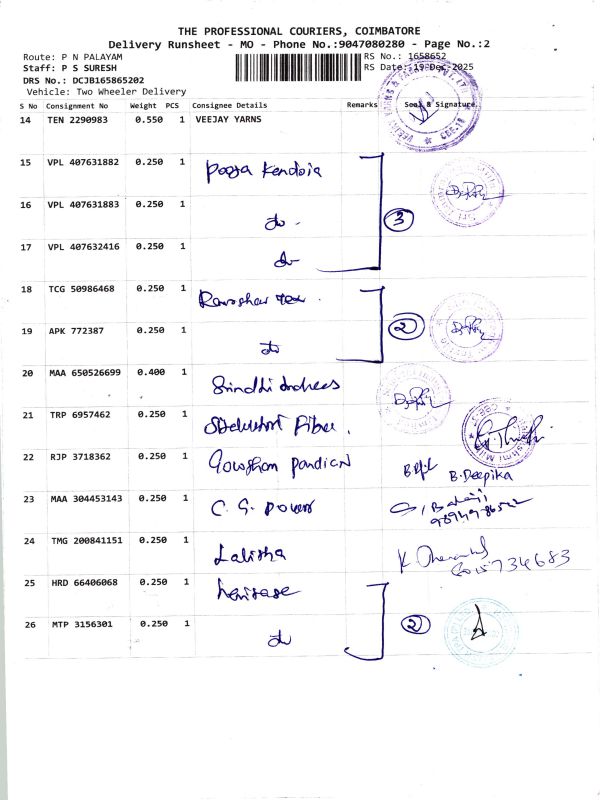 THE PROFESSIONAL COURIERS, COIMBATORE
Delivery Runsheet - MO - Phone No.:9047080280 - Page No.:2
Route: P N PALAYAM RS No.: 1658652
Staff: P S SURESH RS Date: 19-Dec-2025
DRS No.: DCJB165865202
Vehicle: Two Wheeler Delivery
S No Consignment No Weight PCS Consignee Details Remarks Seal & Signature
14 TEN 2290983 0.550 1 VEEJAY YARNS
15 VPL 407631882 0.250 1 Pooja
16 VPL 407631883 0.250 1 do 3
17 VPL 407632416 0.250 1 do
18 TCG 50986468 0.250 1
19 APK 772387 0.250 1 do 2
20 MAA 650526699 0.400 1
21 TRP 6957462 0.250 1 Fiber
22 RJP 3718362 0.250 1 Gowtham Pandian B.Deepika
23 MAA 304453143 0.250 1 C. G. Power
24 TMG 200841151 0.250 1 Lalitha
25 HRD 66406068 0.250 1 heritage
26 MTP 3156301 0.250 1 do 2